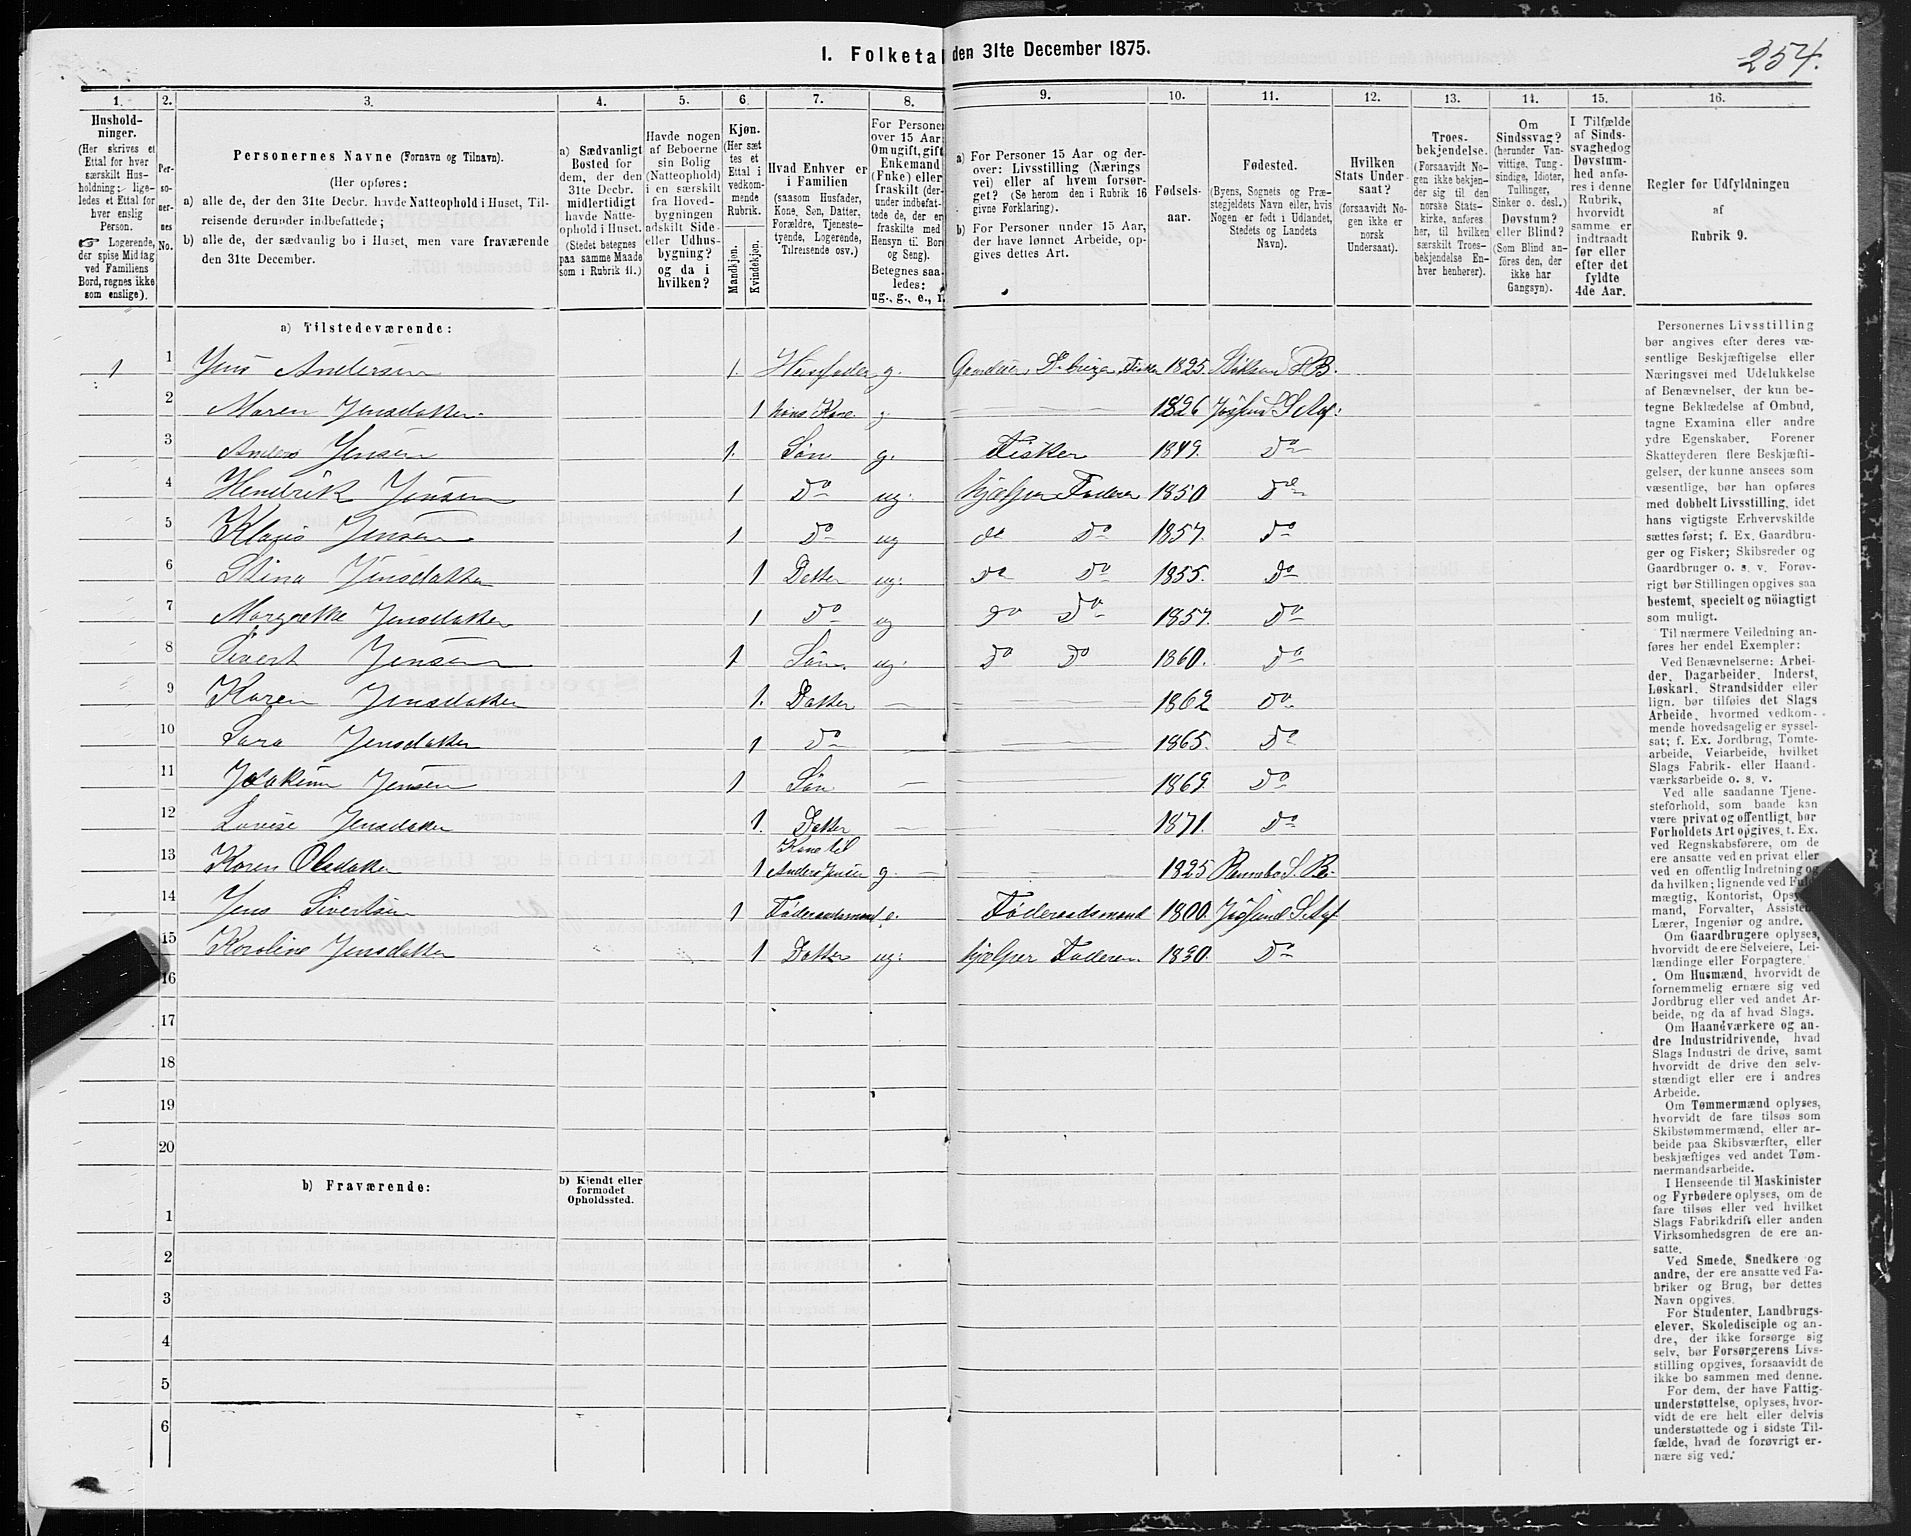 I. Folketal den 31te December 1875.
254.
1. 2. 3. 4. 5. 6. 7. 8. 9. 10. 11. 12. 13. 14. 15. 16.
Hushold-
ninger.
(Her skrives et
Ettal for hver
særskilt Hus-
holdning; lige-
ledes et Ettal for
hver enslig
Person.
☞ Logerende,
der spise Middag
ved Familiens
Bord, regnes ikke
som enslige).
Per-
so-
ner-
nes
No.
Personernes Navne (Fornavn og Tilnavn).
(Her opføres:
a) alle de, der den 31te Decbr. havde Natteophold i Huset, Til-
reisende derunder indbefattede;
b) alle de, der sædvanlig bo i Huset, men vare fraværende
den 31te December.
a) Sædvanligt
Bosted for
dem, der den
31te Decbr.
midlertidigt
havde Natte-
ophold i Huset.
(Stedet betegnes
paa samme Maade
som i Rubrik 11.)
Havde nogen
af Beboerne
sin Bolig
(Natteophold)
i en særskilt
fra Hoved-
bygningen
adskilt Side-
eller Udhus-
bygning?
og da i
hvilken?
Kjøn.
(Her sæt
tes et
Ettal i
vedkom-
mende
Rubrik.
Mandkjøn.
Kvindekjøn.
Hvad Enhver er
i Familien
(saasom Husfader,
Kone, Søn, Datter,
Forældre, Tjeneste-
tyende, Logerende,
Tilreisende osv.)
For Personer
over 15 Aar:
Om ugift, gift,
Enkemand
(Enke) eller
fraskilt (der-
under indbefat-
tede de, der ere
fraskilte med
Hensyn til Bord
og Seng).
Betegnes saa-
ledes:
ug., g., e., f.
a) For Personer 15 Aar og der-
over: Livsstilling (Nærings
vei) eller af hvem forsør-
get? (Se herom den i Rubrik 16
givne Forklaring).
b) For Personer under 15 Aar,
der have lønnet Arbeide, op-
gives dettes Art.
Fødsels-
aar.
Fødested.
(Byens, Sognets og Præ-
stegjeldets Navn eller, hvis
Nogen er født i Udlandet,
Stedets og Landets
Navn).
Hvilken
Stats Under-
saat?
(forsaavidt No-
gen ikke er
norsk
Undersaat).
Troes-
bekjendelse.
(Forsaavidt No-
gen ikke bekjen-
der sig til den
norske Stats-
kirke, anføres
her, til hvilken
særskilt Troes-
bekjendelse En-
hver henhører).
Om
Sindssvag?
(herunder Van-
vittige, Tung-
sindige, Idioter,
Tullinger,
Sinker o. desl.)
Døvstum?
eller Blind?
(Som Blind an-
føres den, der
ikke har
Gangsyn).
I Tilfælde
af Sinds-
svaghed og
Døvstum-
hed anfø-
res i denne
Rubrik,
hvorvidt
samme er
indtraadt
før eller
efter det
fyldte
4de Aar.
Regler for Udfyldningen
af
Rubrik 9.
a) Tilstedeværende:
1 1 Jens Andersen 1. Husfader g. Gaardeier, Fisker 1825. Stoksund B.
2 Maren Jensdatter. 1 hans Kone g. 1826 Jøssund S. Af:
3 Anders Jensen 1. Søn g. Fisker 1849. Do
4 Hendrik Jensen 1 Do ug. hjælper Faderen 1850 Do
5 Klaus Jensen 1 Do ug de Do 1857. Do
6 Stina Jensdatter 1 Datter ug. Do Do 1855. Do
7 Margrethe Jensdatter 1 Do ug Do Do 1857. Do
8 Sivert Jensen 1 Søn. ug. Do Do 1860. Do
9 Karen Jensdatter 1. Datter — 1862 Do
10 Sara Jensdatter 1 Do 1865. Do
11 Joakim Jensen 1 Søn — 1869. Do
12 Lovise Jensdatter 1. Datter — 1871. Do
13 Karen Olsdatter 1 Kone til
Anders Jensen g. — 1825 Rennebo S. R.
14 Jens Sivertsen 1 Føderaadsmand e. Føderaadsmand 1800. Jøssund S. Af
15 Karoline Jensdatter 1 Datter ug: hjælper Faderen 1830. Do
16
17
18
19
20
b) Fraværende:
b) Kjendt eller
formodet
Opholdssted.
1
2
3
4
5
6
Personernes Livsstilling
bør angives efter deres væ-
sentlige Beskjæftigelse eller
Næringsvei med Udelukkelse
af Benævnelser, der kun be-
tegne Beklædelse af Ombud,
tagne Examina eller andre
ydre Egenskaber. Forener
Skatteyderen flere Beskjæfti-
gelser, der kunne ansees som
væsentlige, bør han opføres
med dobbelt Livsstilling, idet
hans vigtigste Erhvervskilde
sættes først; f. Ex. Gaardbru-
ger og Fisker; Skibsreder og
Gaardbruger o. s. v. Forøv-
rigt bør Stillingen opgives saa
bestemt, specielt og nöiagtigt
som muligt.
Til nærmere Veiledning an-
føres her endel Exempler:
Ved Benævnelserne: Arbei-
der, Dagarbeider, Inderst,
Løskarl, Strandsidder eller
lign. bør tilføies det Slags
Arbeide, hvormed vedkom-
mende hovedsagelig er syssel-
sat; f. Ex. Jordbrug, Tomte-
arbeide, Veiarbeide, hvilket
Slags Fabrik- eller Haand-
værksarbeide o. s. v.
Ved alle saadanne Tjene-
steforhold, som baade kan
være privat og offentligt, bør
Forholdets Art opgives, t. Ex.
ved Regnskabsførere, om de
ere ansatte ved en privat eller
ved en offentlig Indretning og
da hvilken; lignende ved Fuld-
mægtig, Kontorist, Opsyns-
mand, Forvalter, Assistent,
Lærer, Ingeniør og andre.
Om Gaardbrugere oplyses,
hvorvidt de ere Selveiere, Lei-
lændinge eller Forpagtere.
Om Husmænd, hvorvidt de
fornemmelig ernære sig ved
Jordbrug eller ved andet Ar-
beide, og da af hvad Slags.
Om Haandværkere og an-
dre Industridrivende, hvad
Slags Industri de drive, samt
hvorvidt de drive den selv-
stændigt eller ere i andres
Arbeide.
Om Tømmermænd oplyses,
hvorvidt de fare tilsøs som
Skibstømmermænd, eller ar-
beide paa Skibsværfter, eller
beskjæftiges ved andet Tøm-
mermandsarbeide.
I Henseende til Maskinister
og Fyrbødere oplyses, om de
fare tilsøs eller ved hvilket
Slags Fabrikdrift eller anden
Virksomhedsgren de ere an-
satte.
Ved Smede, Snedkere og
andre, der ere ansatte ved Fa-
briker og Brug, bør dettes
Navn opgives.
For Studenter, Landbrugs-
elever, Skoledisciple og an-
dre, der ikke forsørge sig
selv, bør Forsørgerens Livs-
stilling opgives, forsaavidt de
ikke bo sammen med denne.
For dem, der have Fattig-
understøttelse, oplyses, hvor-
vidt de ere helt eller delvis
understøttede og i sidste Til-
fælde, hvad de forøvrigt er-
nære sig ved.